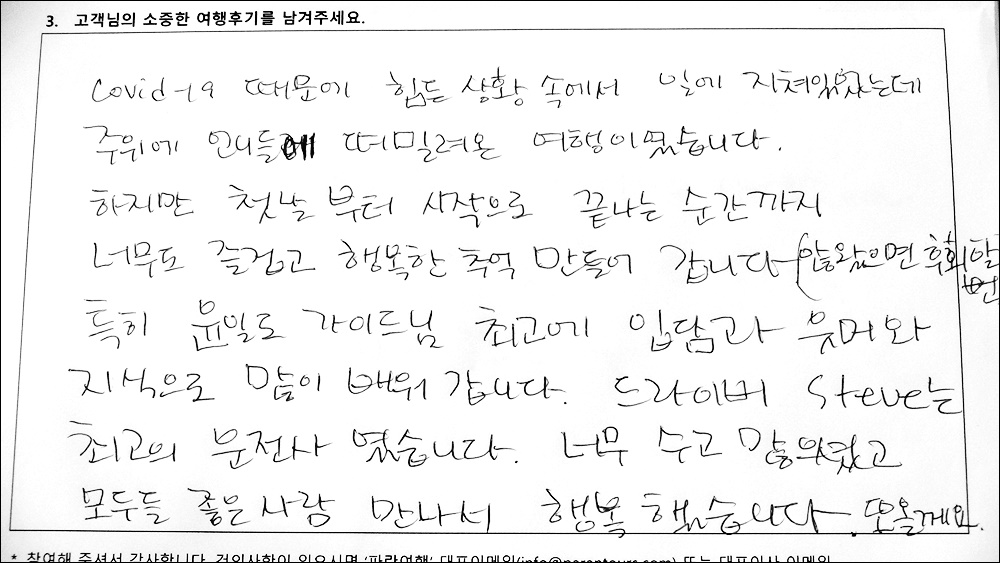 3. 고객님의 소중한 여행후기를 남겨주세요.
covid-19 때문에 힘든 상황 속에서 일에 지쳐있었는데
주위에 언니들에 떠밀려온 여행이였습니다.
하지만 첫날 부터 시작으로 끝나는 순간까지
너무도 즐겁고 행복한 추억 만들어 갑니다 (않왔으면 후회할
뻔
특히 윤일로 가이드님 최고에 입담과 유머와
지식으로 많이 배워 갑니다. 드라이버 Steve는
최고의 운전사 였습니다. 너무 수고 많으셨고
모두들 좋은 사람 만나서 행복 했습니다. 또올게요.
* 참여해 주셔서 감사합니다. 건의사항이 있으시면 '파란여행' 대표이메일(info@parantours.com) 또는 대표이사 이메일